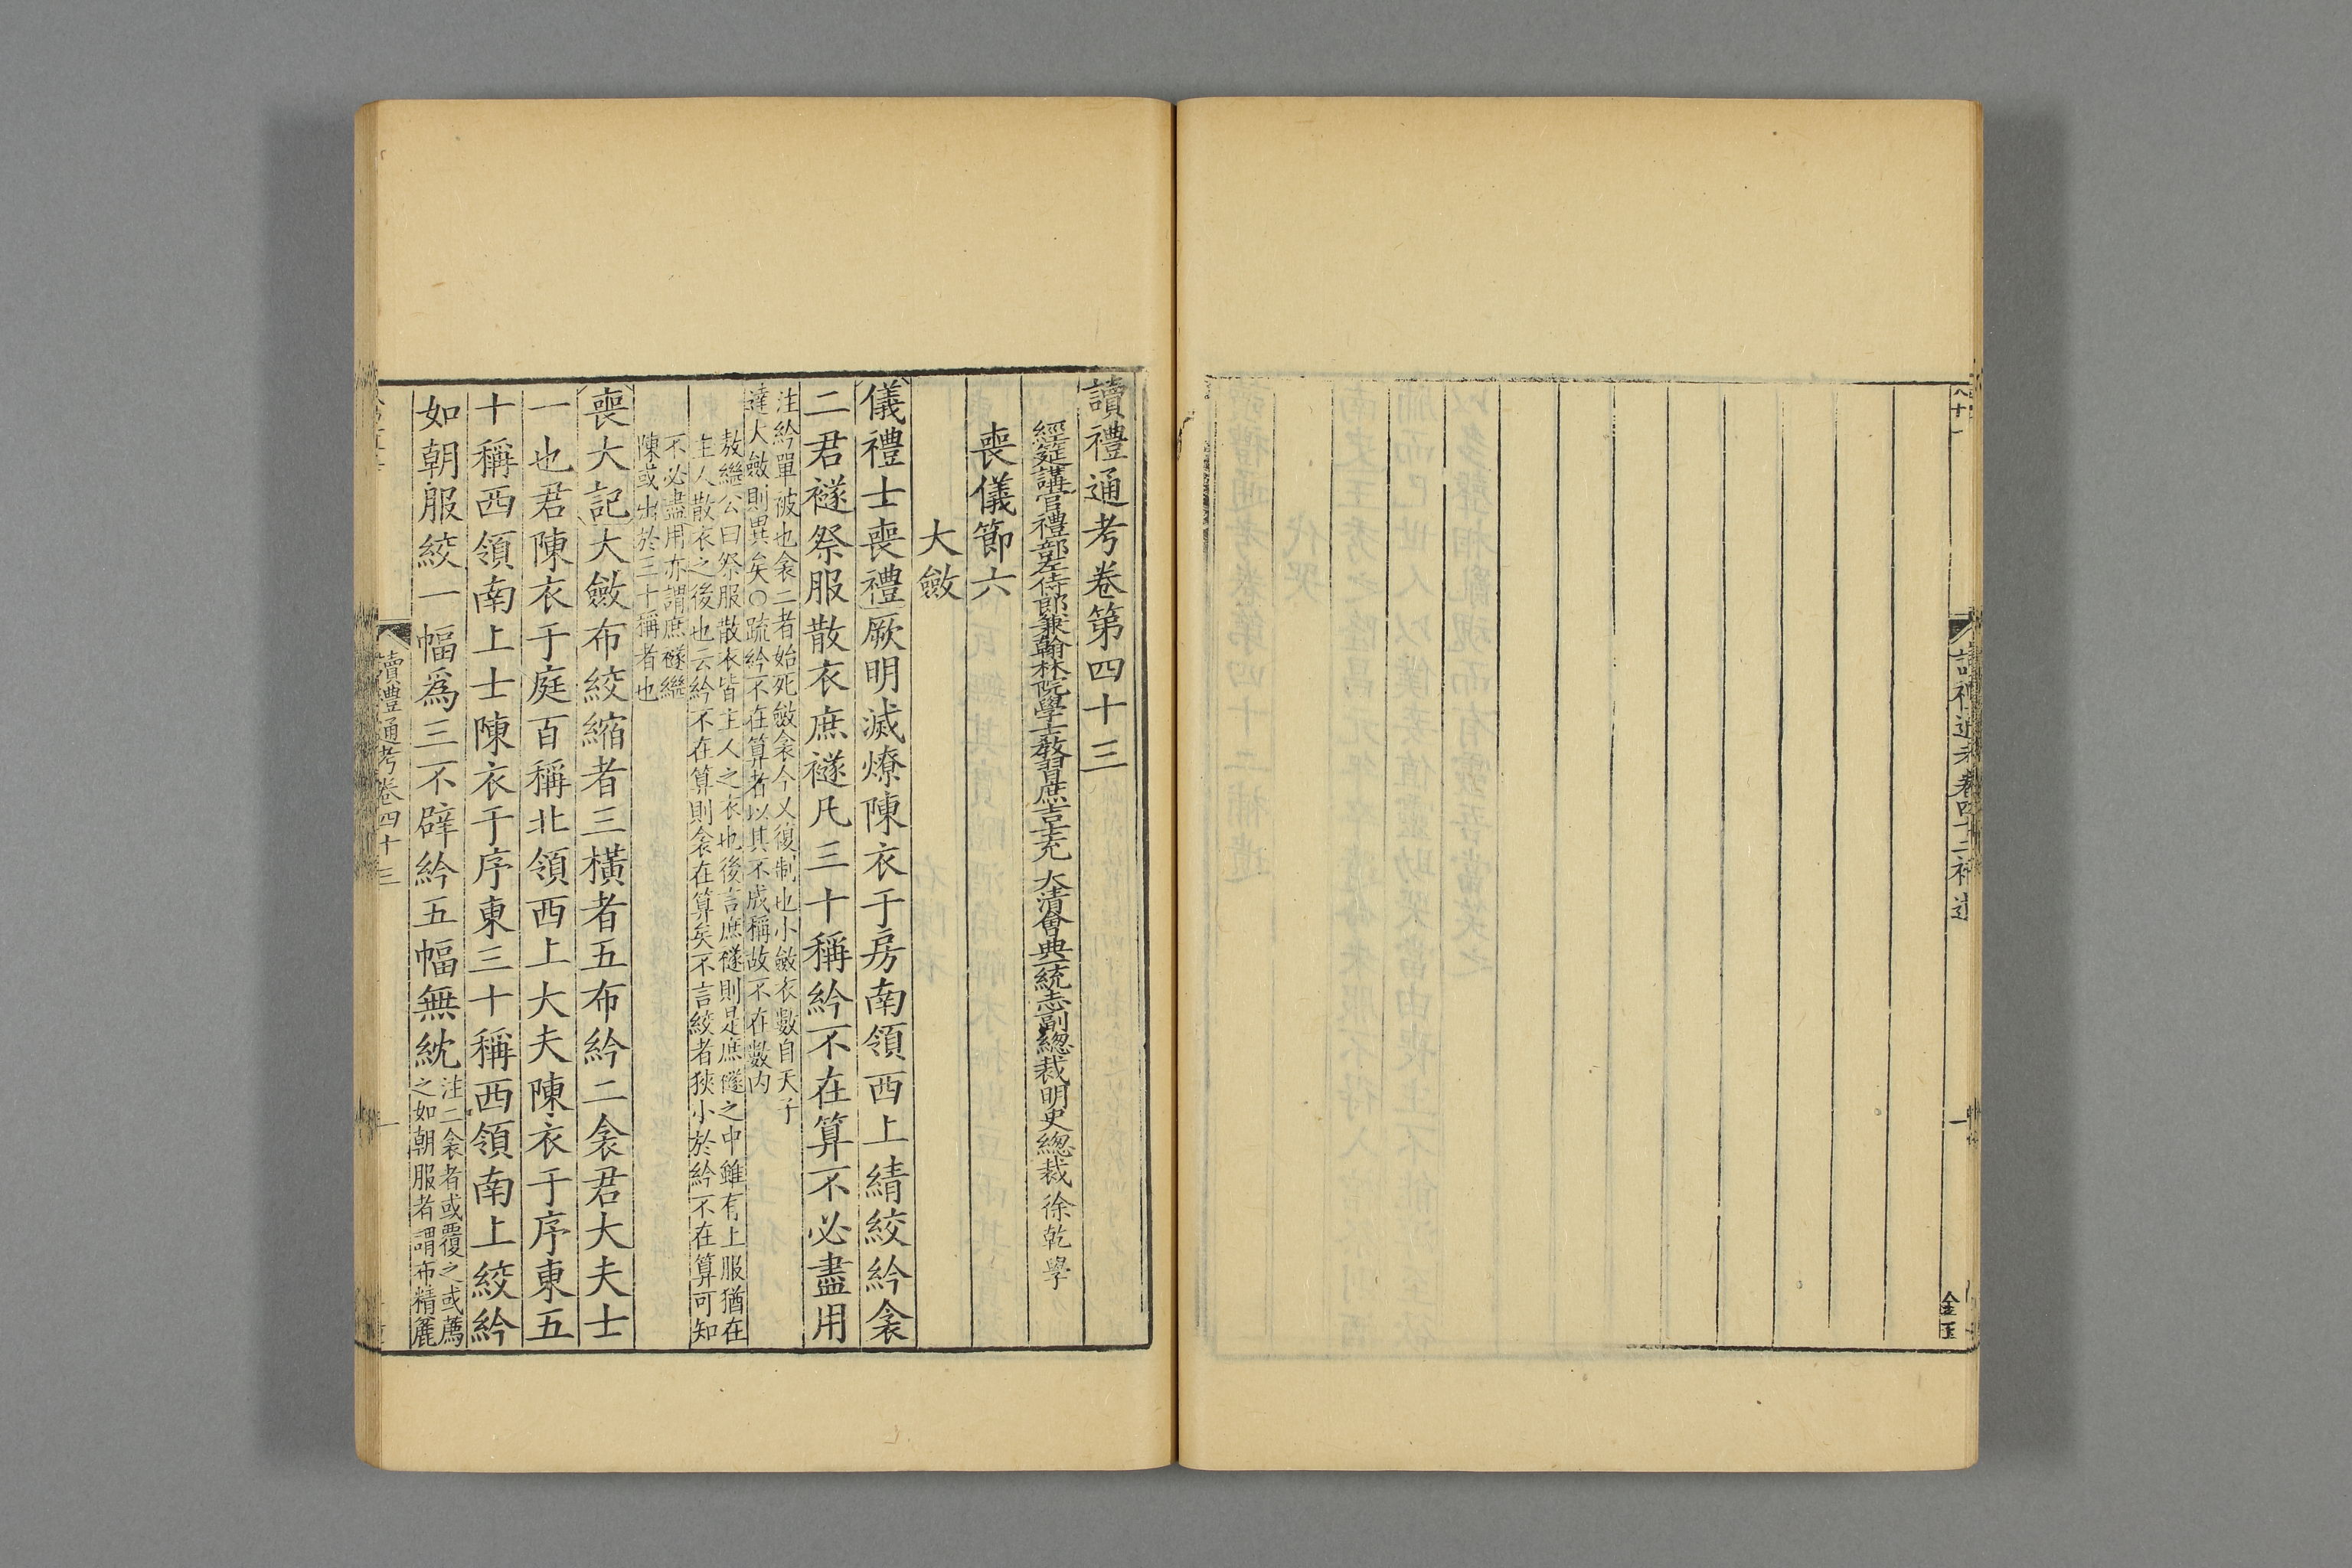 讀禮通考卷第四十三
經筵講官禮部左侍郎兼翰林院學士教習庶吉士充　大清會典一統志副總裁明史總裁徐乾學
喪儀節六
大斂
儀禮士喪禮厥明滅燎陳衣于房南領西上綪絞紟衾
二君襚祭服散衣庶襚凡三十稱紟不在算不必盡用
注紟單被也衾二者始死斂衾今又復制也小斂衣數自天子
達大斂則異矣○疏紟不在算者以其不成稱故不在數内
敖繼公曰祭服散衣皆主人之衣也後言庶襚則是庶襚之中雖有上服猶在
主人散衣之後也云紟不在算則衾在算矣不言絞者狹小於紟不在算可知
不必盡用亦謂庶襚繼
陳或出於三十稱者也
喪大記大斂布絞縮者三橫者五布紟二衾君大夫士
一也君陳衣于庭百稱北領西上大夫陳衣于序東五
十稱西領南上士陳衣于序東三十稱西領南上絞紟
如朝服絞一幅為三不辟紟五幅無紞
注二衾者或覆之或薦
之如朝服者謂布精麤
讀禮通考卷四十三
一